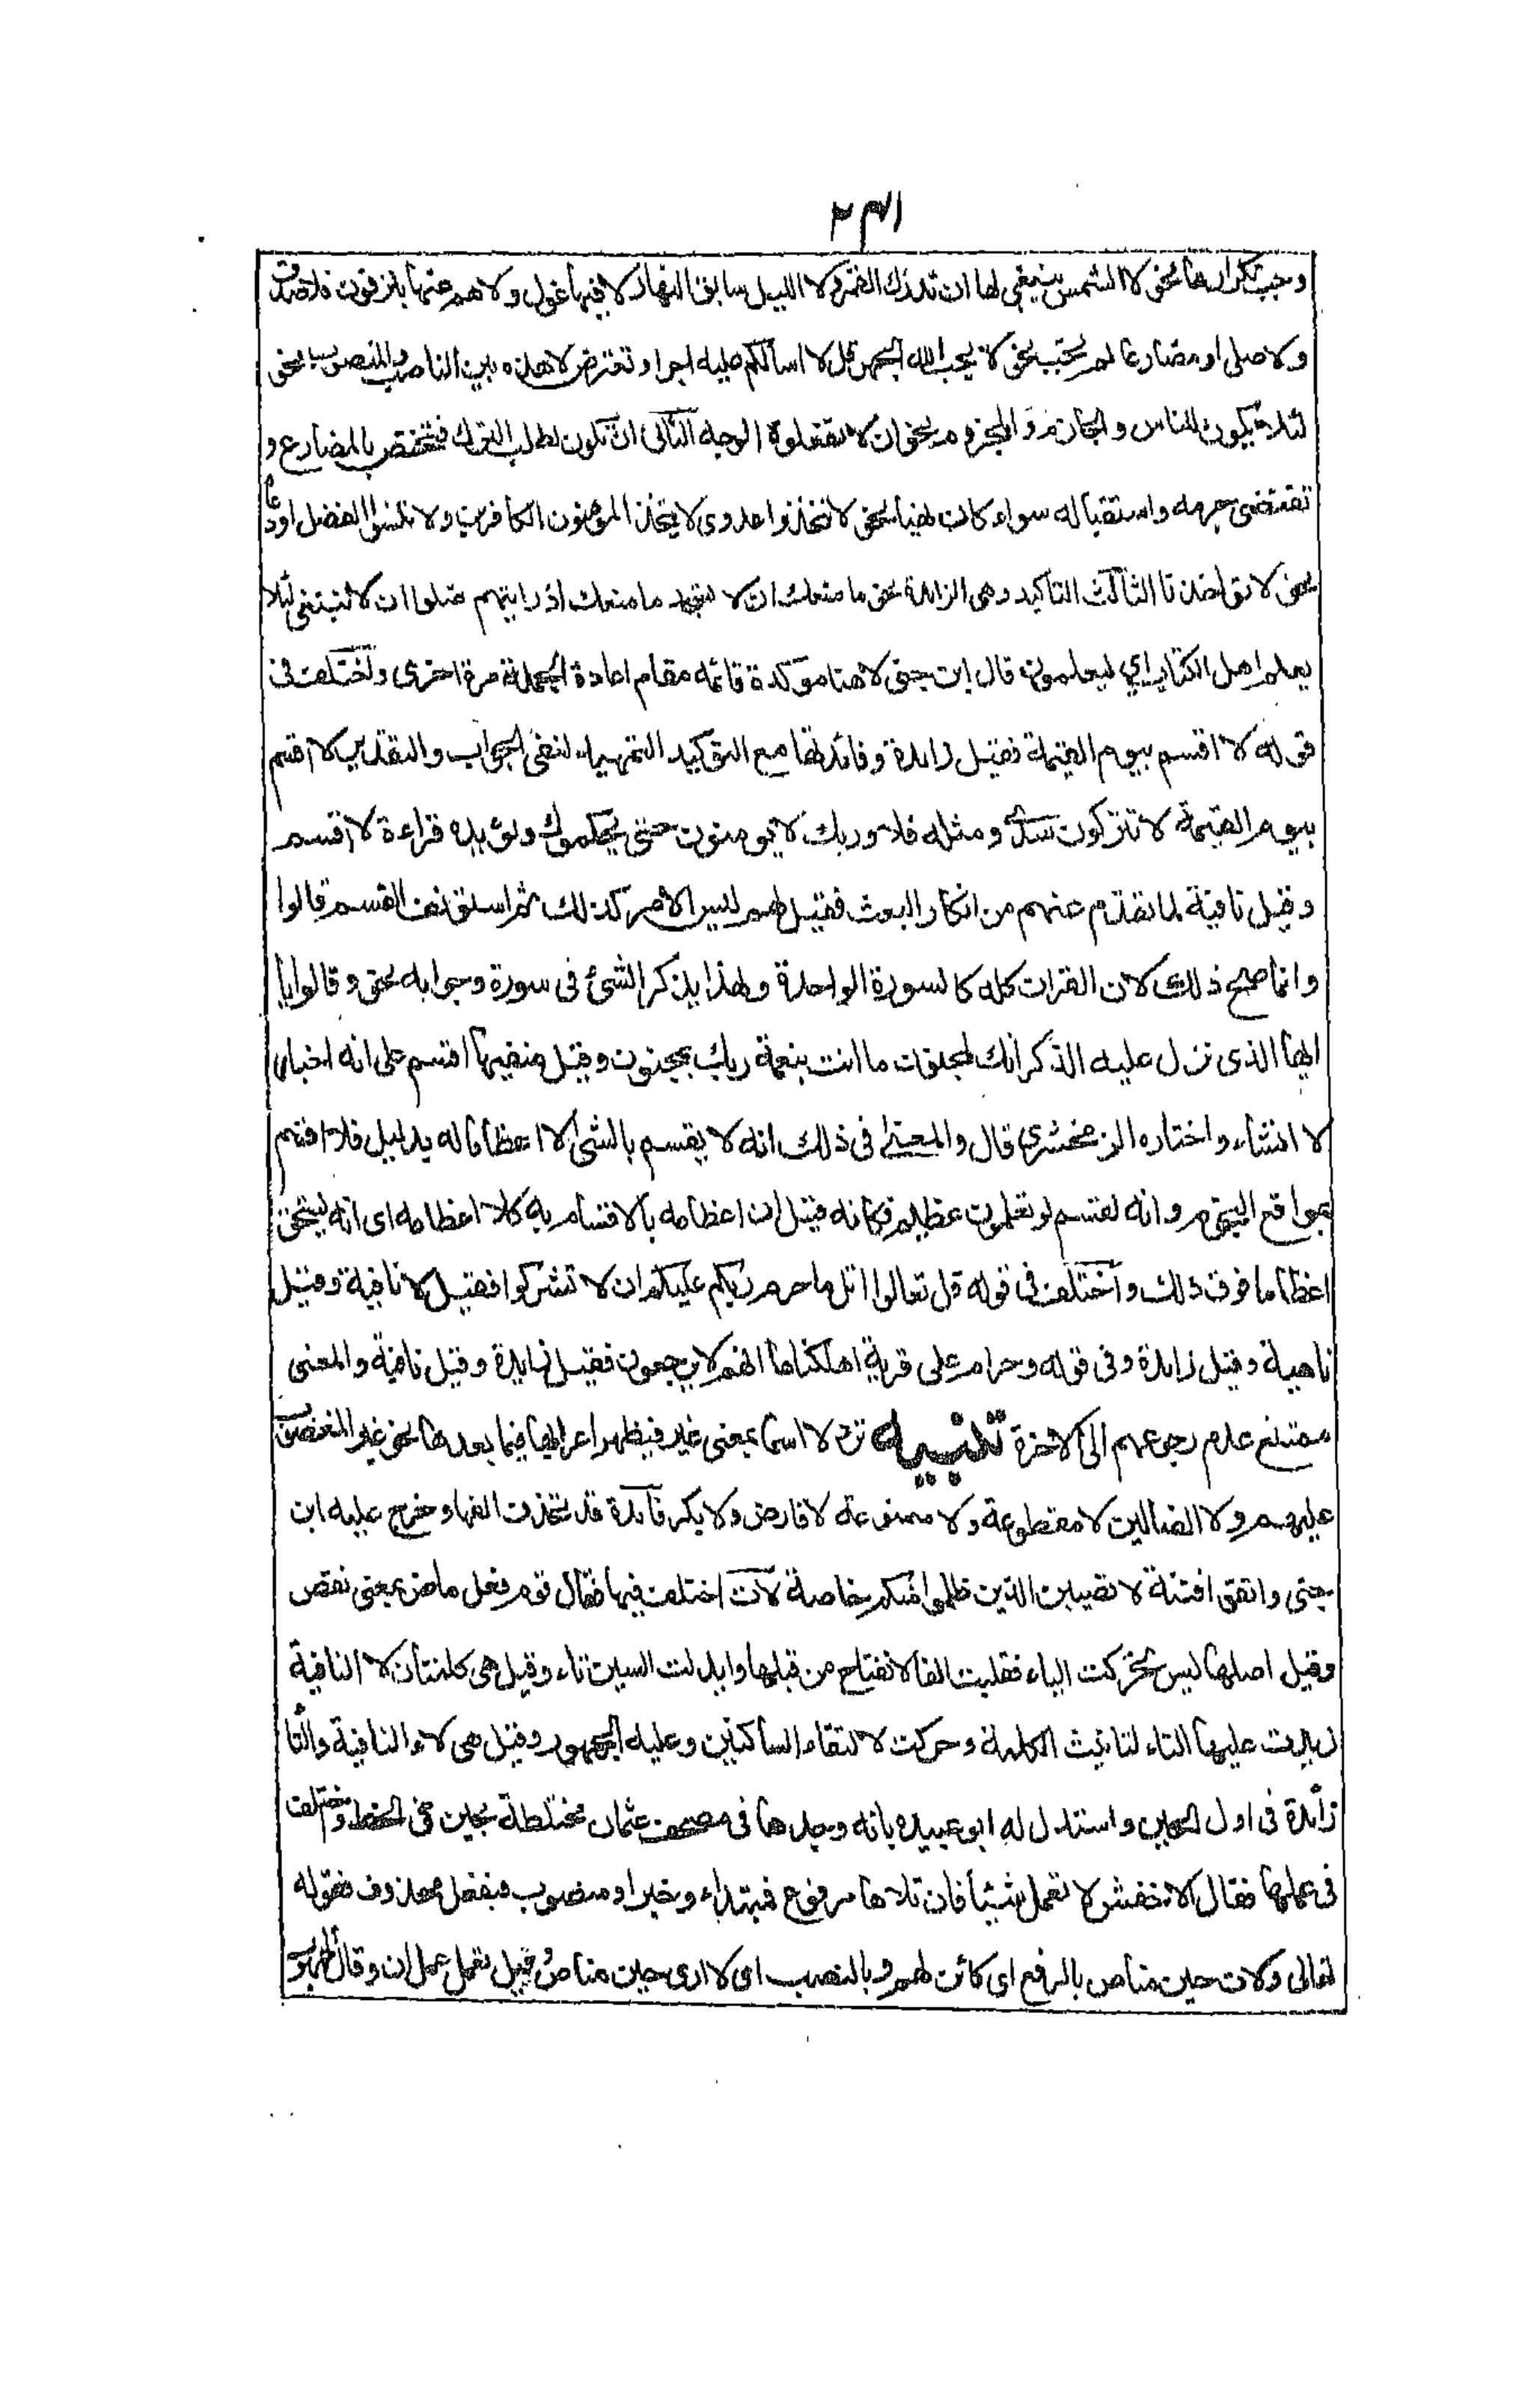 ٢٣١
وجب تكرارها نحو لا الشمس ينبغي لها ان تدرك القمر ولا الليل سابق النهار لا فيها غول ولا هم عنها ينزفون فلا صدق
ولا صلى او مضارعا لم يجب نحو لا يحب الله الجهر قل لا اسألكم عليه اجرا وتعترض لا هذه بين الناصب والمنصوب نحو
لئلا يكون للناس والجازم والمجزوم نحو ان لا تفعلوه الوجه الثانى ان تكون لطلب الترك فتختص بالمضارع و
تقتضى جزمه واستقباله سواء كان نهيا نحو لا تتخذوا عدوى لا يتخذ المؤمنون الكافرين ولا تنسوا الفضل او دعا
نحو لا تؤاخذنا الثالث التأكيد وهى الزائدة نحو ما منعك ان لا تسجد ما منعك اذ رايتهم ضلوا ان لا تتبعنى لئلا
يعلم اهل الكتاب اي ليعلموا قال ابن جنى لا هنا مؤكدة قائمة مقام اعادة الجملة مرة اخرى واختلف فى
قوله لا اقسم بيوم القيمة فقيل زايدة وفائدتها مع التوكيد التمهيد لنفى الجواب والتقدير لا اقسم
بيوم القيمة لا تتركون سدى ومثله فلا وربك لا يومنون حتى يحكموك ويؤيده قراءة لا قسم
وقيل نافية لما تقدم عنهم من انكار البعث فقيل لهم ليس الامر كذلك ثم استؤنف القسم قالوا
وانما صح ذلك لان القران كله كالسورة الواحدة ولهذا يذكر الشئ فى سورة وجوابه نحو وقالوا يا
ايها الذى نزل عليه الذكر انك لمجنون ما انت بنعمة ربك بمجنون وقيل منفيها اقسم على انه اخبار
لا انشاء واختاره الزمخشري قال والمعنى فى ذلك انه لا يقسم بالشئ الا اعظاما له بدليل فلا اقسم
بمواقع النجوم وانه لقسم لو تعلمون عظيم فكانه قيل ان اعظامه بالاقسام به كلا اعظامه اى انه ليستحق
اعظاما فوق ذلك واختلف فى قوله قل تعالوا اتل ما حرم ربكم عليكم ان لا تشركوا فقيل لا نافية وقيل
ناهية وقيل زايدة وفى قوله وحرام على قرية اهلكناها انهم لا يرجعون فقيل زايدة وقيل نافية والمعنى
ممتنع عدم رجوعهم الى الاخرة تنبيه ترد لا اسما بمعنى غير فيظهر اعرابها فيما بعدها نحو غير المغضوب
عليهم ولا الضالين لا مقطوعة ولا ممنوعة لا فارض ولا بكر فائدة قد تحذف الفها وخرج عليه ابن
جنى واتقوا فتنة لا تصيبن الذين ظلموا منكم خاصة لات اختلف فيها فقال قوم فعل ماض بمعنى نقص
وقيل اصلها ليس تحركت الياء فقلبت الفا لانفتاح من قبلها وابدلت السين تاء وقيل هى كلمتان لا النافية
زيدت عليها التاء لتانيث الكلمة وحركت لالتقاء الساكنين وعليه الجمهور وقيل هى لا النافية والتا
زائدة فى اول الحين واستدل له ابو عبيدة بانه وجدها فى مصحف عثمان مختلطة بحين فى الخط واختلف
فى عملها فقال الاخفش لا تعمل شيئا فان تلاها مرفوع فمبتداء وخبر او منصوب فبفعل محذوف فقوله
تعالى ولات حين مناص بالرفع اى كائن لهم وبالنصب اى لا ارى حين مناص وقيل تعمل عمل ان وقال الجمهور